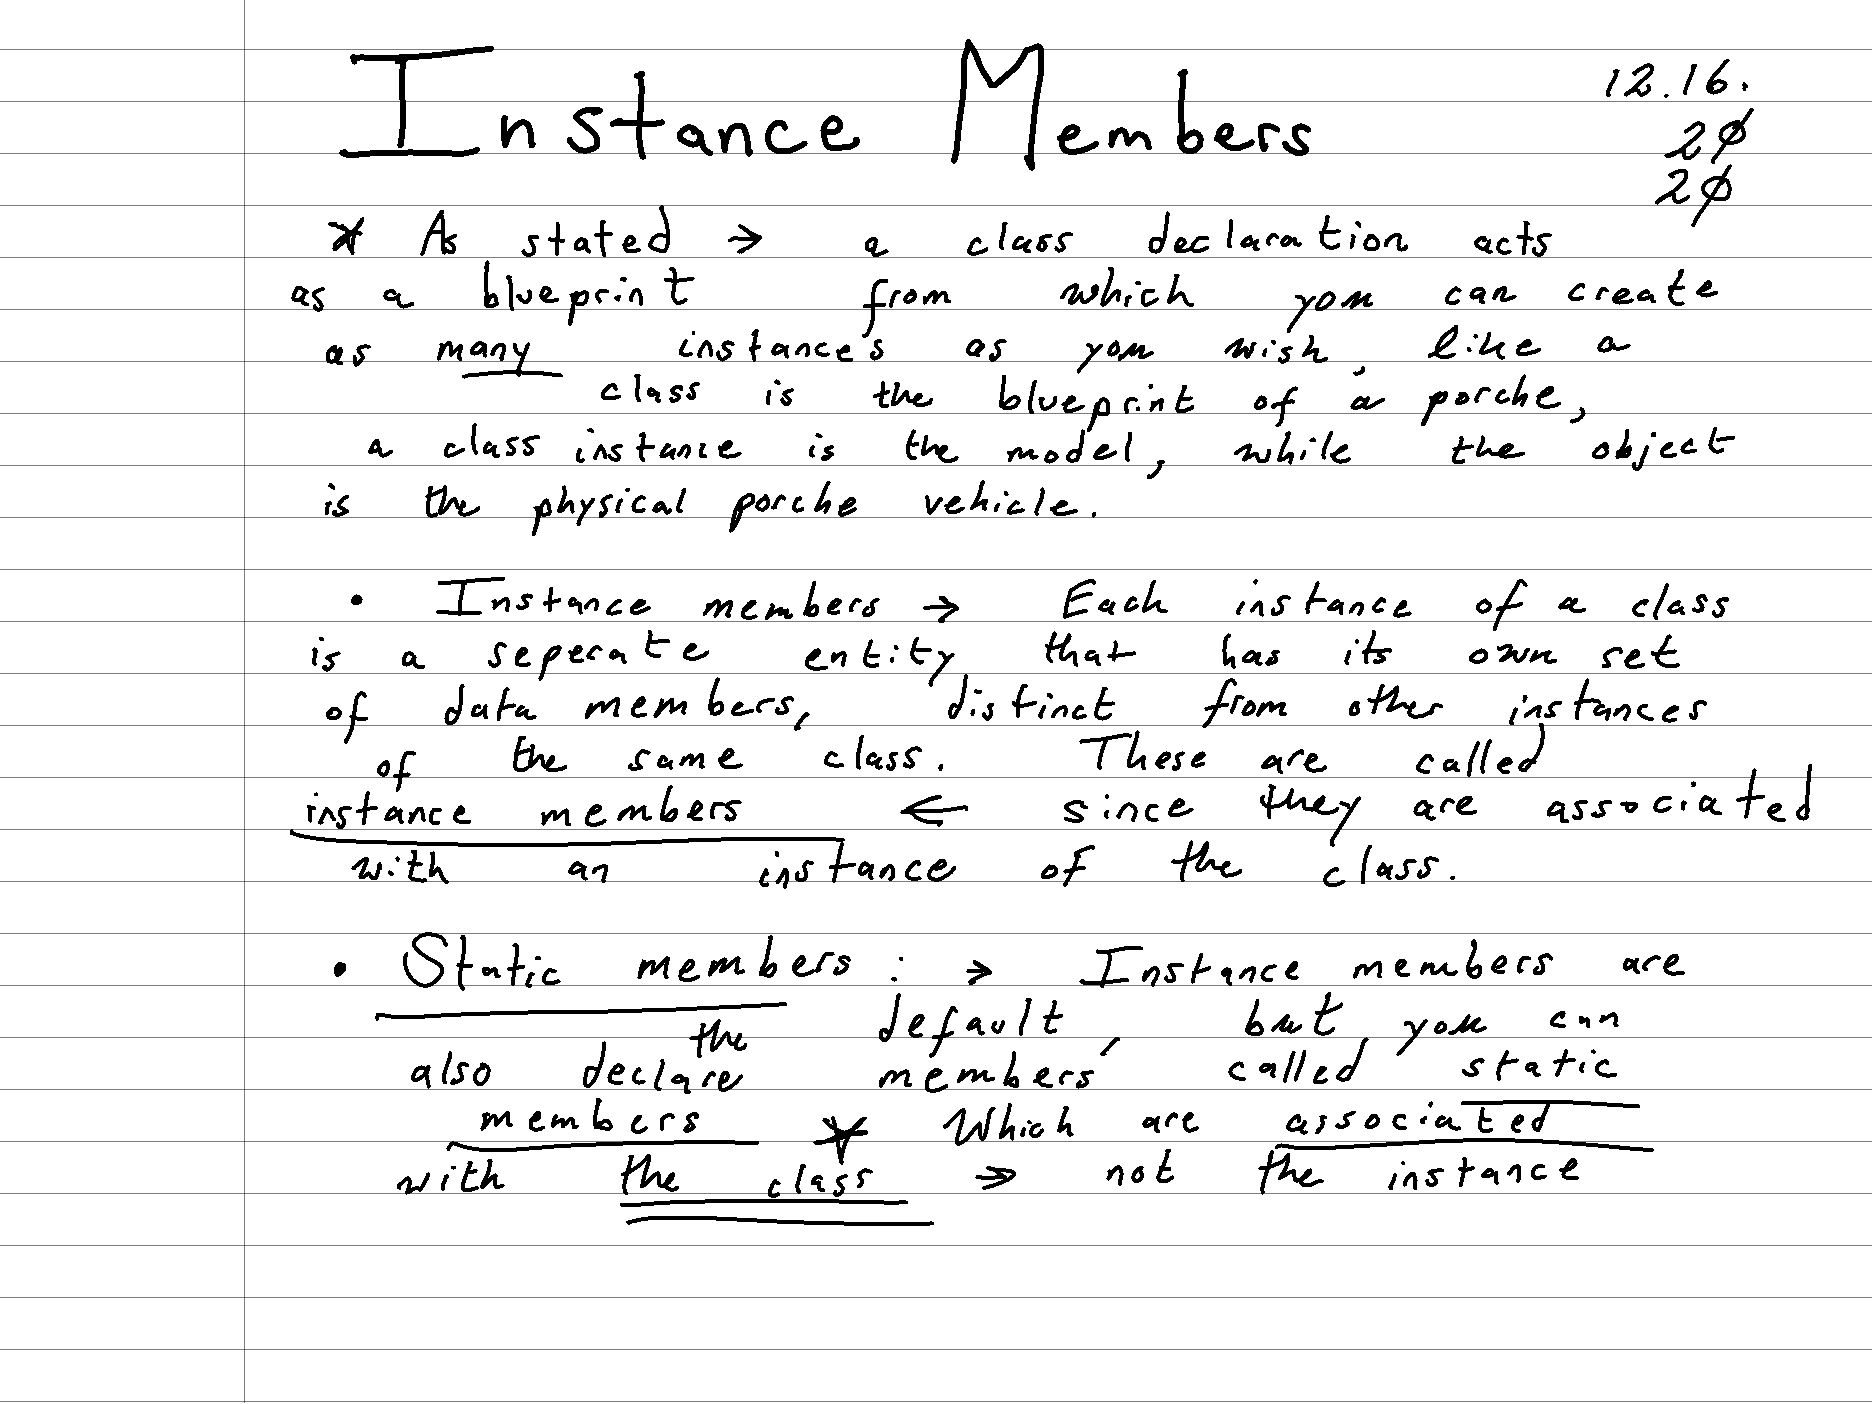 Instance Members
12.16.
2∅
2∅
* As stated → a class declaration acts
as a blueprint from which you can create
as many instances as you wish, like a
class is the blueprint of a porche,
a class instance is the model, while the object
is the physical porche vehicle.
• Instance members → Each instance of a class
is a seperate entity that has its own set
of data members, distinct from other instances
of the same class. These are called
instance members ← since they are associated
with an instance of the class.
• Static members : → Instance members are
the default, but you can
also declare members called static
members * Which are associated
with the class → not the instance